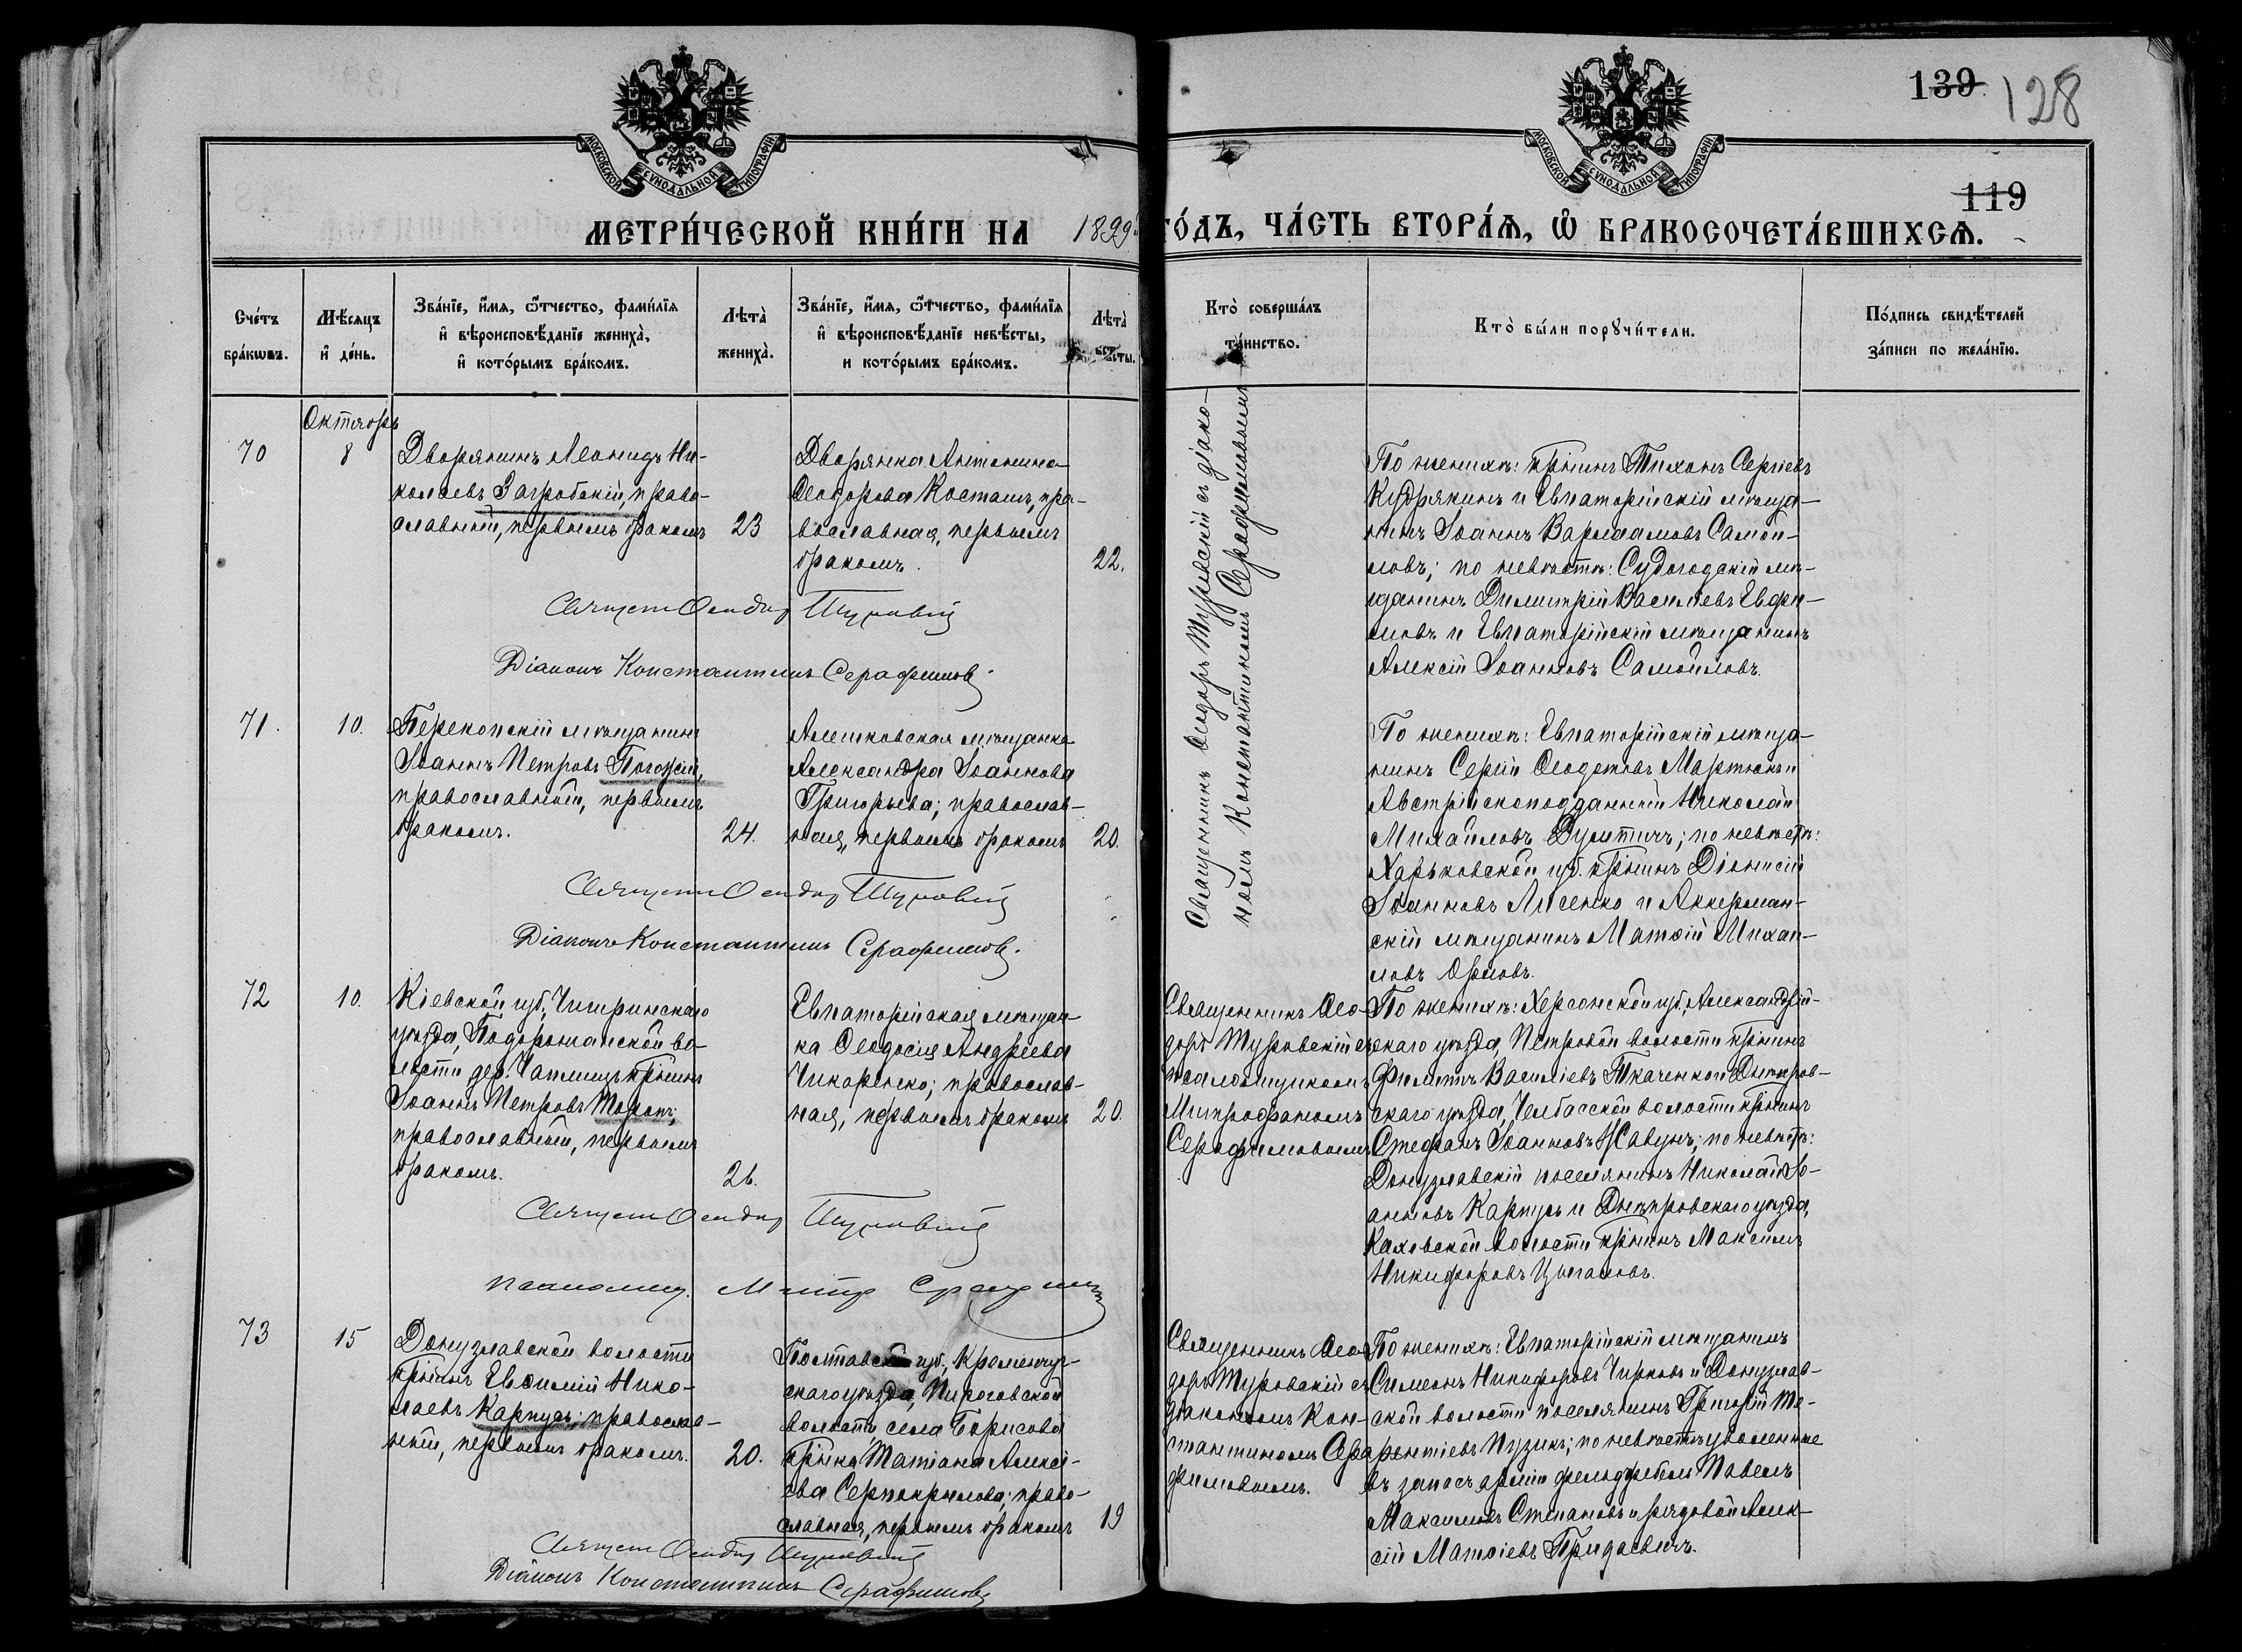 139 128
119
МОСКОВСКОЙ СѴНОДАЛЬНОЙ ТИПОГРАФІИ
МОСКОВСКОЙ СѴНОДАЛЬНОЙ ТИПОГРАФІИ
МЕТРИ́ЧЕСКОЙ КНИ́ГИ НА 1899 ГО́ДЪ, ЧА́СТЬ ВТОРА́Ѧ, Ѽ БРАКОСОЧЕТА́ВШИХСѦ.
Сче́тъ
бра́кѡвъ.
Мѣ́сѧцъ
и҆ де́нь.
Зва́нїе, и҆́мѧ, ѻ҆́тчество, фами́лїѧ
и҆ вѣроисповѣ́данїе жениха̀,
и҆ кото́рымъ бра́комъ.
Лѣта̀
жениха̀.
Зва́нїе, и҆́мѧ, ѻ҆́тчество, фами́лїѧ
и҆ вѣроисповѣ́данїе невѣ́сты,
и кото́рымъ бра́комъ.
Лѣта̀
невѣсты.
Кто̀ соверша́лъ
та́инство.
Кто̀ бы́ли порꙋчи́тели.
По́дпись свидѣ́телей
за́писи по жела́нїю.
Октябрь
70
8
Дворянинъ Леонидъ Ни-
колаевъ Загробскій, право-
славный, первымъ бракомъ
23
Дворянка Антонина
Ѳеодорова Косташъ, пра-
вославная, первымъ
бракомъ.
22.
Священникъ Ѳеодоръ Туровскій съ діако-
номъ Константиномъ Серафимовымъ
По женихѣ: кр҃нинъ Тихонъ Сергіевъ
Кудрякинъ и Евпаторійскій мѣща-
нинъ Іоаннъ Варлаамовъ Самой-
ловъ; по невѣстѣ: Судогодскій мѣ-
щанинъ Димитрій Васильевъ Ефи-
мовъ и Евпаторійскій мѣщанинъ
Алексій Іоанновъ Самойловъ.
Священ Ѳеодор Туровскій
Діаконъ Константинъ Серафимовъ.
71.
10.
Перекопскій мѣщанинъ
Іоаннъ Петровъ
православный, первымъ
бракомъ.
24.
Алешковская мѣщанка
Александра Іоаннова
Григорьева; православ-
ная, первымъ бракомъ
20.
По женихѣ: Евпаторійскій мѣща-
нинъ Сергій Ѳеодотовъ Мартюкъ и
Австрійскоподданный Николай
Михайловъ по невѣстѣ:
Харьковской губ. кр҃нинъ Діонисій
Іоанновъ Лисенко и Аккерман-
скій мѣщанинъ Матѳій Михаи-
ловъ Орловъ.
Священ Ѳеодор Туровскій
Діаконъ Константинъ Серафимовъ.
72
10.
Кіевской губ., Чигиринскаго
уѣзда, Подорожанской во-
лости дер. кр҃нинъ
Іоаннъ Петровъ
православный, первымъ
бракомъ.
26.
Евпаторійская мѣщан-
ка Ѳеодосія Андреева
Чикаренко; православ-
ная, первымъ бракомъ
20.
Священникъ Ѳео-
доръ Туровскій съ
псаломщикомъ
Митрофаномъ
Серафимовымъ
По женихѣ: Херсонской губ., Александрій-
скаго уѣзда, Петровой волости кр҃нинъ
Филиппъ Василіевъ Ткаченко и Днѣпров-
скаго уѣзда, Челбасской волости кр҃нинъ
Стефанъ Іоанновъ по невѣстѣ:
Донузлавскій поселянинъ Николай Іо-
анновъ Карпусь и Днѣпровскаго уѣзда,
Каховской волости кр҃нинъ Максимъ
Никифоровъ Цыгановъ.
Священ Ѳеодор Туровскій
псаломщ. Митр Серафим
73
15
Донузлавской волости
кр҃нинъ Евѳимій Нико-
лаевъ Карпусь; православ-
ный, первымъ бракомъ.
20.
Полтавской губ., Кременчуг-
скаго уѣзда, Пироговской
волости, села Борисова
кр҃нка Татіана Алексі-
ева Серпокрылова; право-
славная, первымъ бракомъ
19
Священникъ Ѳео-
доръ Туровскій съ
діакономъ Кон-
стантиномъ Сера-
фимовымъ.
По женихѣ: Евпаторійскій мѣщанинъ
Симеонъ Никифоровъ Чирковъ и Донузлав-
ской волости поселянинъ Григорій Те-
рентіевъ Пузикъ; по невѣстѣ: уволенные
въ запасъ арміи фельдфебель Павелъ
Максимовъ Степановъ и рядовой Алек-
сій Матѳіевъ
Священ Ѳеодор Туровскій
Діаконъ Константинъ Серафимовъ